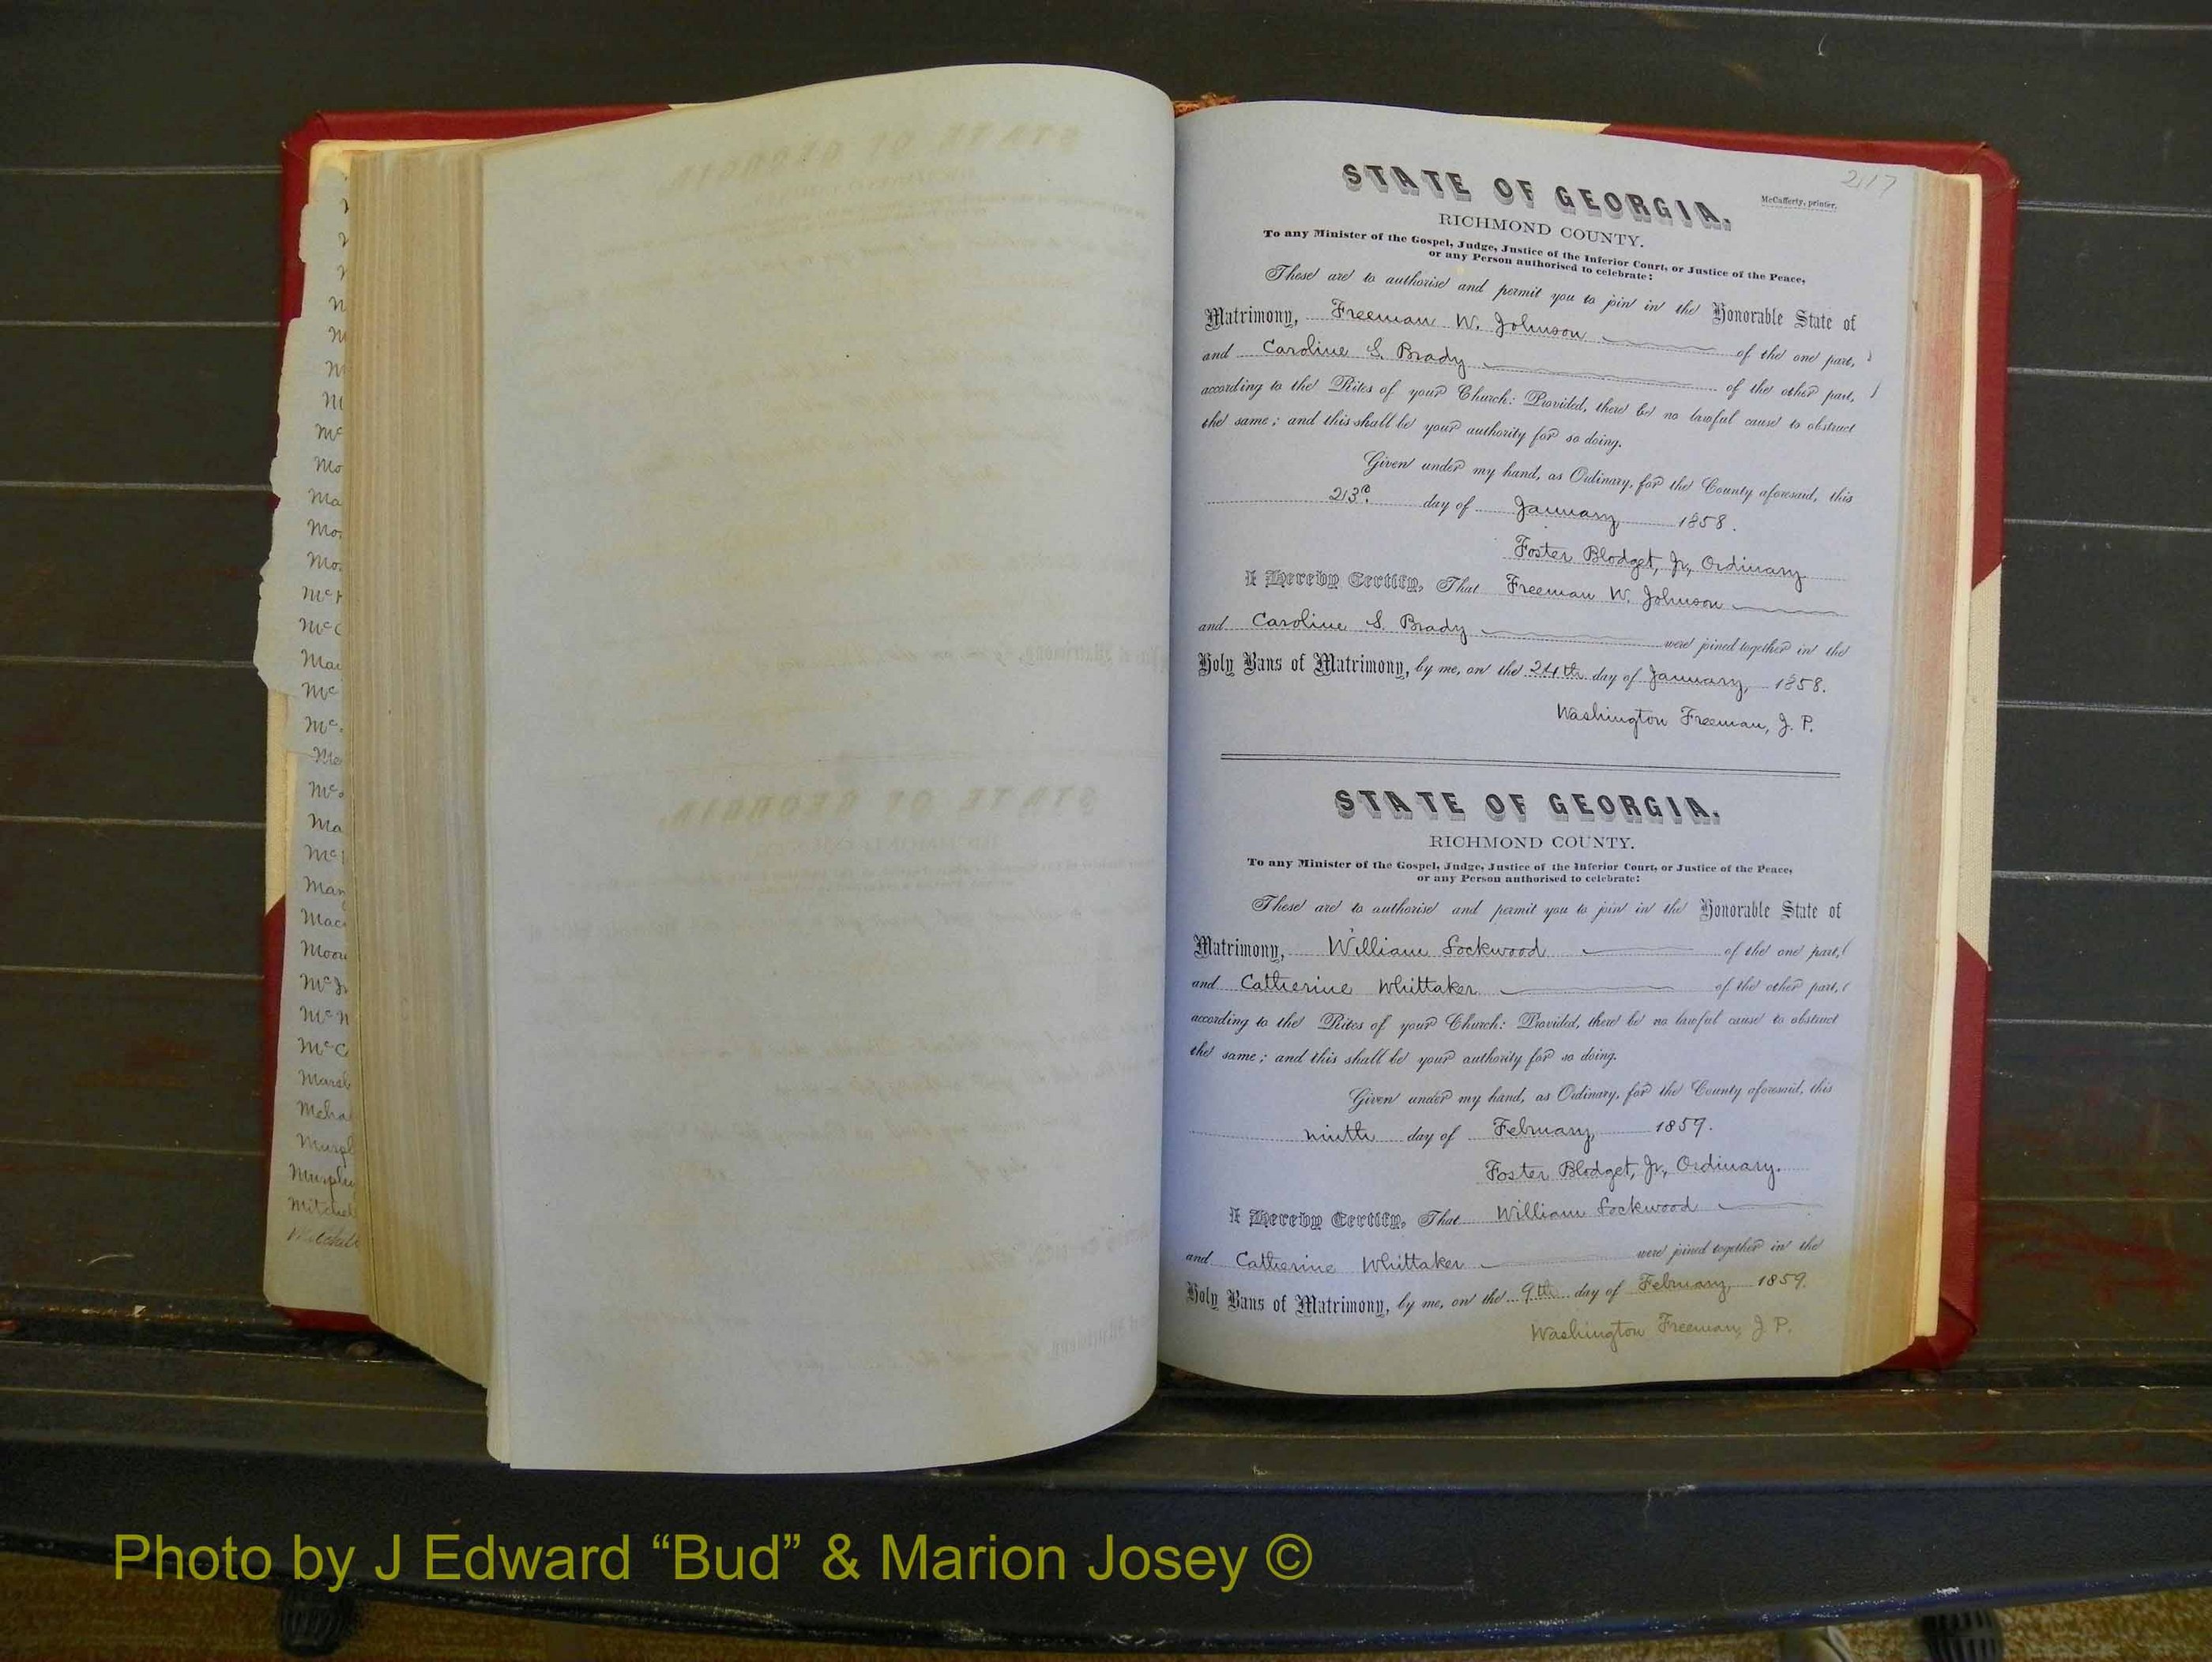 217
McCafferty, printer.
STATE OF GEORGIA.
RICHMOND COUNTY.
To any Minister of the Gospel, Judge, Justice of the Inferior Court, or Justice of the Peace,
or any Person authorised to celebrate:
These are to authorise and permit you to join in the Honorable State of
Matrimony, Freeman W. Johnson of the one part,
and Caroline S. Brady of the other part,
according to the Rites of your Church: Provided, there be no lawful cause to obstruct
the same; and this shall be your authority for so doing.
Given under my hand, as Ordinary, for the County aforesaid, this
23d. day of January 1858.
Foster Blodget, Jr, Ordinary
I Hereby Certify, That Freeman W. Johnson
and Caroline S. Brady were joined together in the
Holy Bans of Matrimony, by me, on the 24th day of January, 1858.
Washington Freeman, J. P.
STATE OF GEORGIA.
RICHMOND COUNTY.
To any Minister of the Gospel, Judge, Justice of the Inferior Court, or Justice of the Peace,
or any Person authorised to celebrate:
These are to authorise and permit you to join in the Honorable State of
Matrimony, William Lockwood of the one part,
and Catherine Whittaker of the other part,
according to the Rites of your Church: Provided, there be no lawful cause to obstruct
the same; and this shall be your authority for so doing.
Given under my hand, as Ordinary, for the County aforesaid, this
ninth day of February, 1859.
Foster Blodget, Jr, Ordinary.
I Hereby Certify, That William Lockwood
and Catherine Whittaker were joined together in the
Holy Bans of Matrimony, by me, on the 9th day of February, 1859.
Washington Freeman, J P.
Photo by J Edward “Bud” & Marion Josey ©